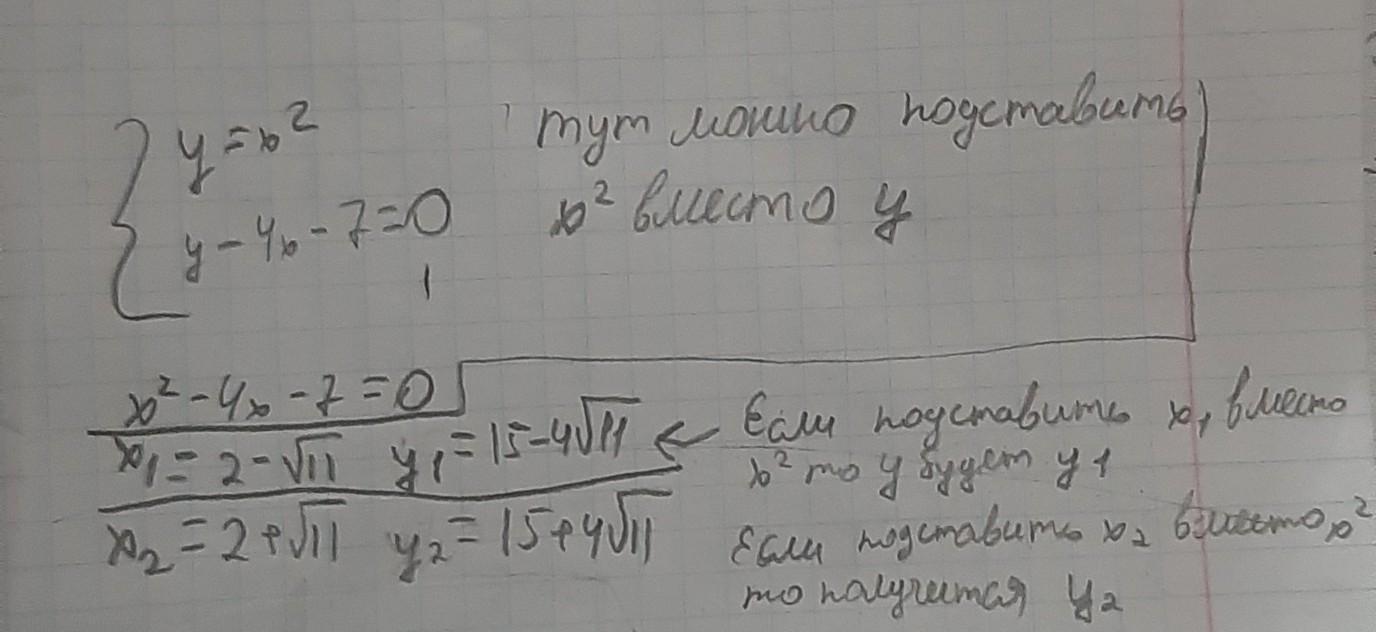 y = x²
тут можно подставить
y - 4x - 7 = 0
x² вместо y
x² - 4x - 7 = 0
x₁ = 2 - √11 y₁ = 15 - 4√11 ← Если подставить x₁ вместо
x² то y будет y1
x₂ = 2 + √11 y₂ = 15 + 4√11
Если подставить x₂ вместо x²
то получится y₂